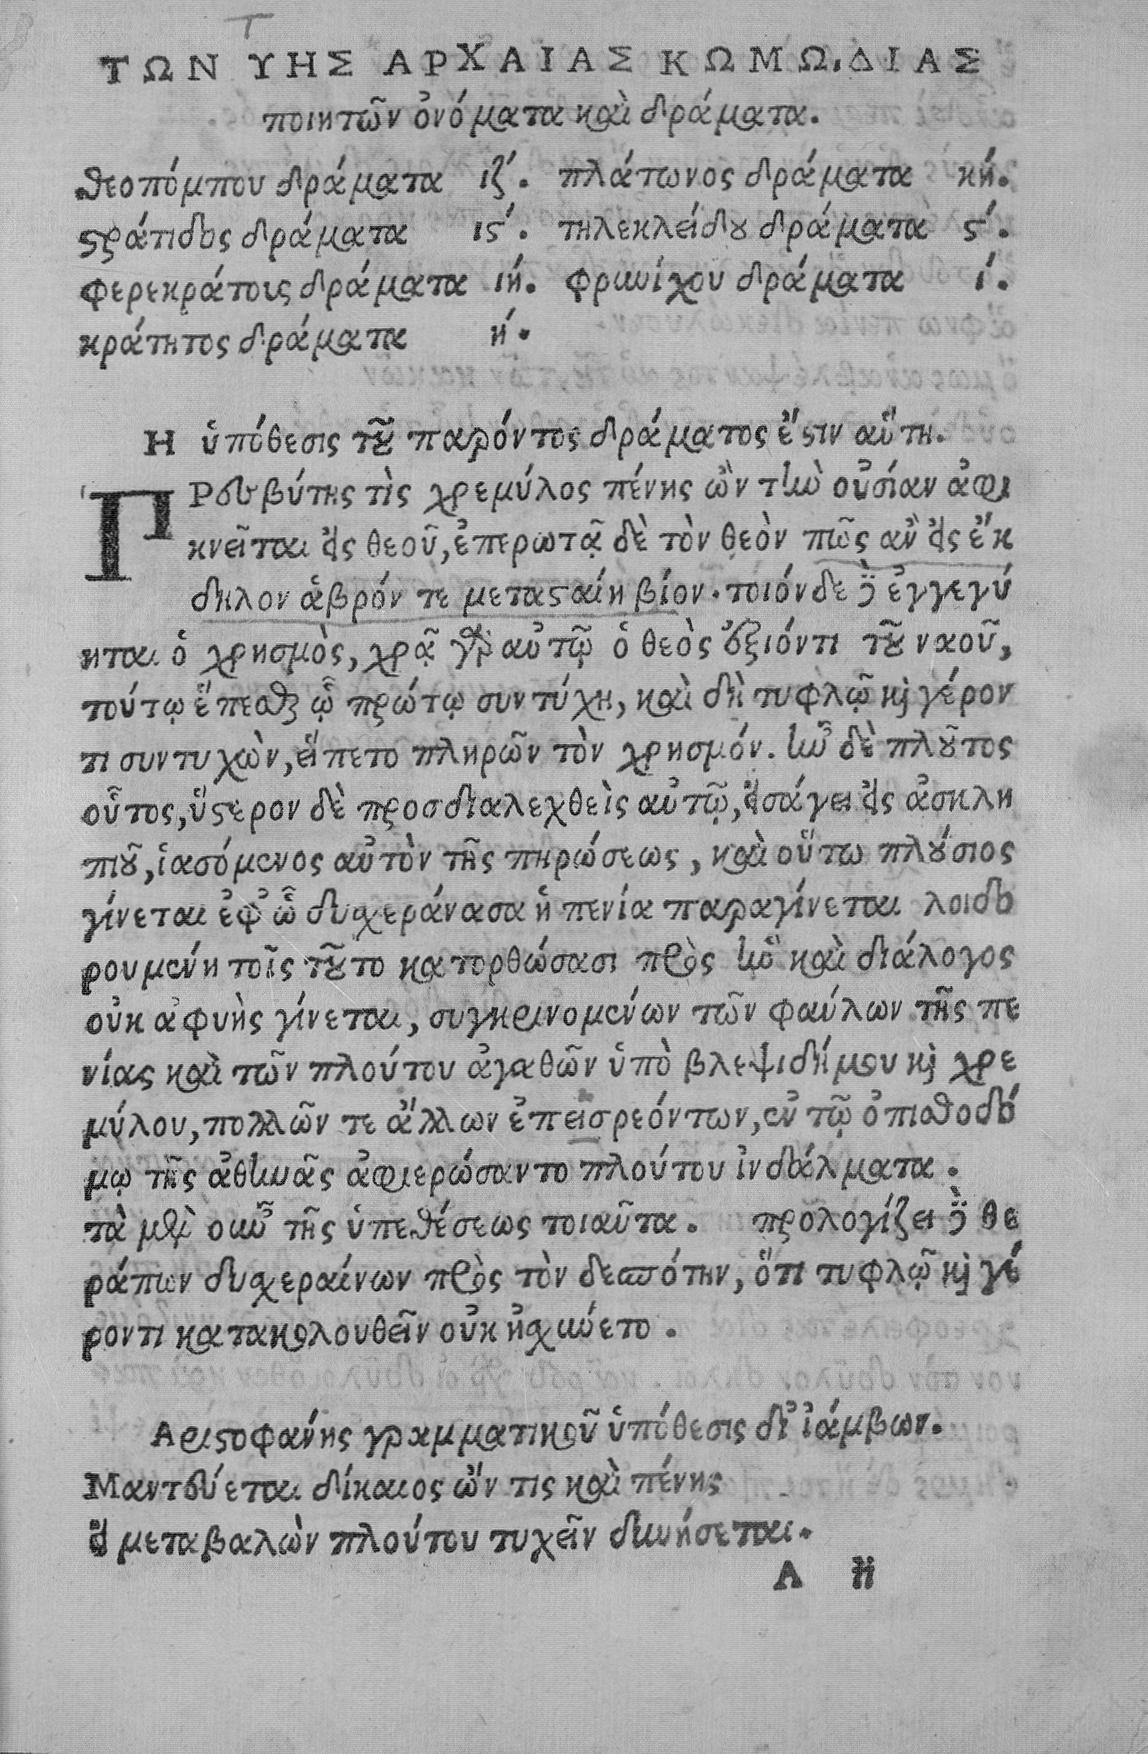 ΤΩΝ ΥΗΣ ΑΡΧΑΙΑΣ ΚΩΜΩ,ΔΙΑΣ
ποιητῶν ὀνόματα καὶ δράματα.
θεοπόμπου δράματα ιζ΄. πλάτωνος δράματα κή.
ϛράτιδος δράματα ιϛ΄. τηλεκλείδȣ δράματα ϛ΄.
φερεκράτους δράματα ιή. φρυνίχου δράματα ί.
κράτητος δράματα ή.
Η ὑπόθεσις τȣ͂ παρόντος δράματος ἔϛιν αὕτη.
ΠΡεσβύτης τὶς χρεμύλος πένης ὢν τὴν οὐσίαν ἀφι
κνεῖται εἰς θεοῦ, ἐπερωτᾷ δὲ τὸν θεὸν πῶς ἂν εἰς ἔκ
δηλον ἁβρόν τε μεταϛαίη βίον. τοιόνδε δὲ ἐγγεγύ
ηται ὁ χρησμὸς, χρᾷ γὰρ αὐτῷ ὁ θεὸς ἐξιόντι τȣ͂ ναοῦ,
τούτῳ ἕπεσθαι ᾧ πρώτῳ συντύχῃ, καὶ δὴ τυφλῷ καὶ γέρον
τι συντυχὼν, εἵπετο πληρῶν τὸν χρησμόν. ἦν δὲ πλȣ͂τος
οὗτος, ὕϛερον δὲ προσδιαλεχθεὶς αὐτῷ, εἰσάγει εἰς ἀσκλη
πιȣ͂, ἰασόμενος αὐτὸν τῆς πηρώσεως, καὶ οὕτω πλȣ́σιος
γίνεται ἐφ᾽ ᾧ δυχεράνασα ἡ πενία παραγίνεται λοιδο
ρουμένη τοῖς τȣ͂το κατορθώσασι πρὸς ἣν καὶ διάλογος
οὐκ ἀφυὴς γίνεται, συγκρινομένων τῶν φαύλων τῆς πε
νίας καὶ τῶν πλούτου ἀγαθῶν ὑπὸ βλεψιδήμου καὶ χρε
μύλου, πολλῶν τε ἄλλων ἐπεισρεόντων, ἐν τῷ ὀπισθοδό
μῳ τῆς ἀθηνᾶς ἀφιερώσαντο πλούτου ἰνδάλματα.
τὰ μὲν οὖν τῆς ὑπεθέσεως τοιαῦτα. προλογίζει δὲ θε
ράπων δυχεραίνων πρὸς τὸν δεσπότην, ὅτι τυφλῷ καὶ γέ
ροντι κατακολουθεῖν οὐκ ᾐσχύνετο.
Αριϛοφάνης γραμματικοῦ ὑπόθεσις δι᾽ ἰάμβων.
Μαντεύεται δίκαιος ὤν τις καὶ πένης
εἰ μεταβαλὼν πλούτου τυχεῖν δυνήσεται.
Α ii